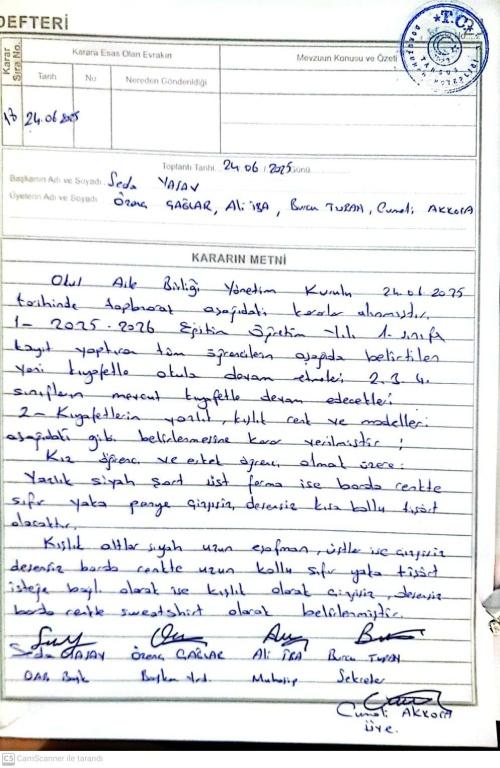 DEFTERİ
T.C.
Karar Sıra No.
Karara Esas Olan Evrakın
Mevzuun Konusu ve Özeti
Tarih
No
Nereden Gönderildiği
17
24.06.2025
Toplantı Tarihi 24.06/2025 Günü
Başkanın Adı ve Soyadı Seda YASAV
Üyelerin Adı ve Soyadı Özenç ÇAĞLAR, Ali İBA, Burcu TURAN, Cumali AKKOCA
KARARIN METNİ
Okul Aile Birliği Yönetim Kurulu 24.06.2025
tarihinde toplanarak aşağıdaki kararlar alınmıştır.
1- 2025-2026 Eğitim Öğretim Yılı 1. sınıfa
kayıt yaptıran tüm öğrencilerin aşağıda belirtilen
yeni kıyafetle okula devam etmeleri 2. 3. 4.
sınıfların mevcut kıyafetle devam edecekleri
2- Kıyafetlerin yazlık, kışlık renk ve modelleri
aşağıdaki gibi belirlenmesine karar verilmiştir;
Kız öğrenci ve erkek öğrenci olmak üzere:
Yazlık siyah şort üst forma ise bordo renkte
sıfır yaka penye çizgisiz, desensiz kısa kollu tişört
olacaktır.
Kışlık altlar siyah uzun eşofman, üstler ise çizgisiz
desensiz bordo renkte uzun kollu sıfır yaka tişört
isteğe bağlı olarak ise kışlık olarak çizgisiz, desensiz
bordo renkte sweatshirt olarak belirlenmiştir.
Seda YASAV Özenç ÇAĞLAR Ali İBA Burcu TURAN
OAB Başk Başkan Yrd. Muhasip Sekreter
Cumali AKKOCA
Üye.
CS CamScanner ile tarandı